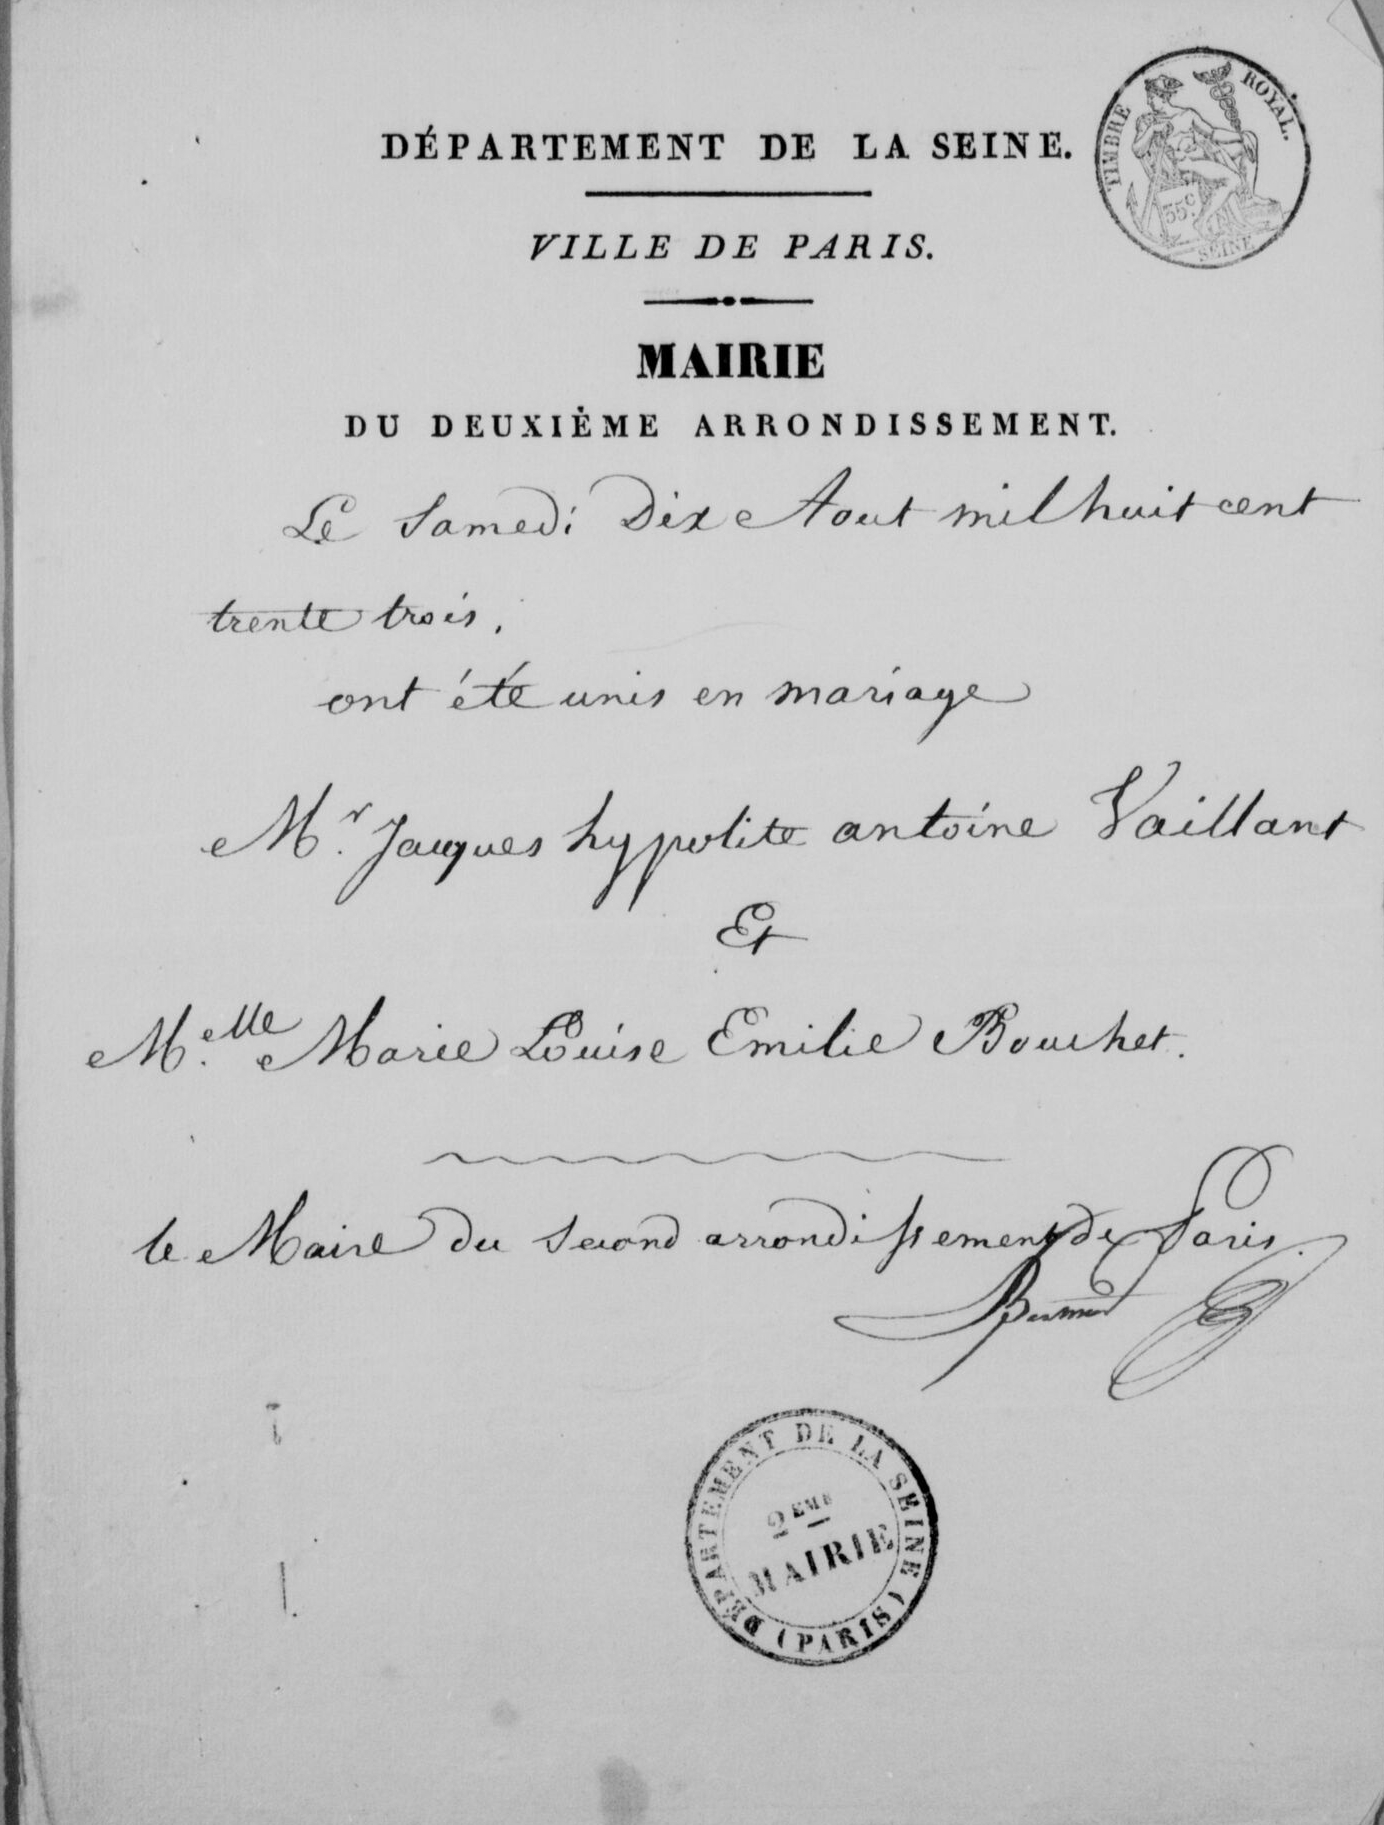 DÉPARTEMENT DE LA SEINE.
TIMBRE ROYAL.
35 c
SEINE
VILLE DE PARIS.
MAIRIE
DU DEUXIÈME ARRONDISSEMENT.
Le Samedi Dix Aout mil huit cent
trente trois.
ont été unis en mariage
Mr. Jacques hypolite antoine Vaillant
Et
Melle. Marie Louise Emilie Bouchet.
le Maire du Second arrondissement de Paris.
DÉPARTEMENT DE LA SEINE (PARIS)
2EME
MAIRIE